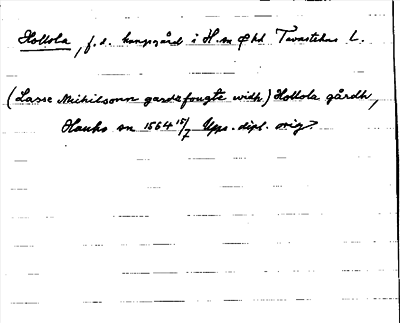 Hollola, f.d. kungsgård i H. sn o hd Tavastehus L.
(Lasse Michilsonn gardz fougte widh) Hollola gårdh,
Hauho sn 1564 15/7 Ups. dipl. orig?